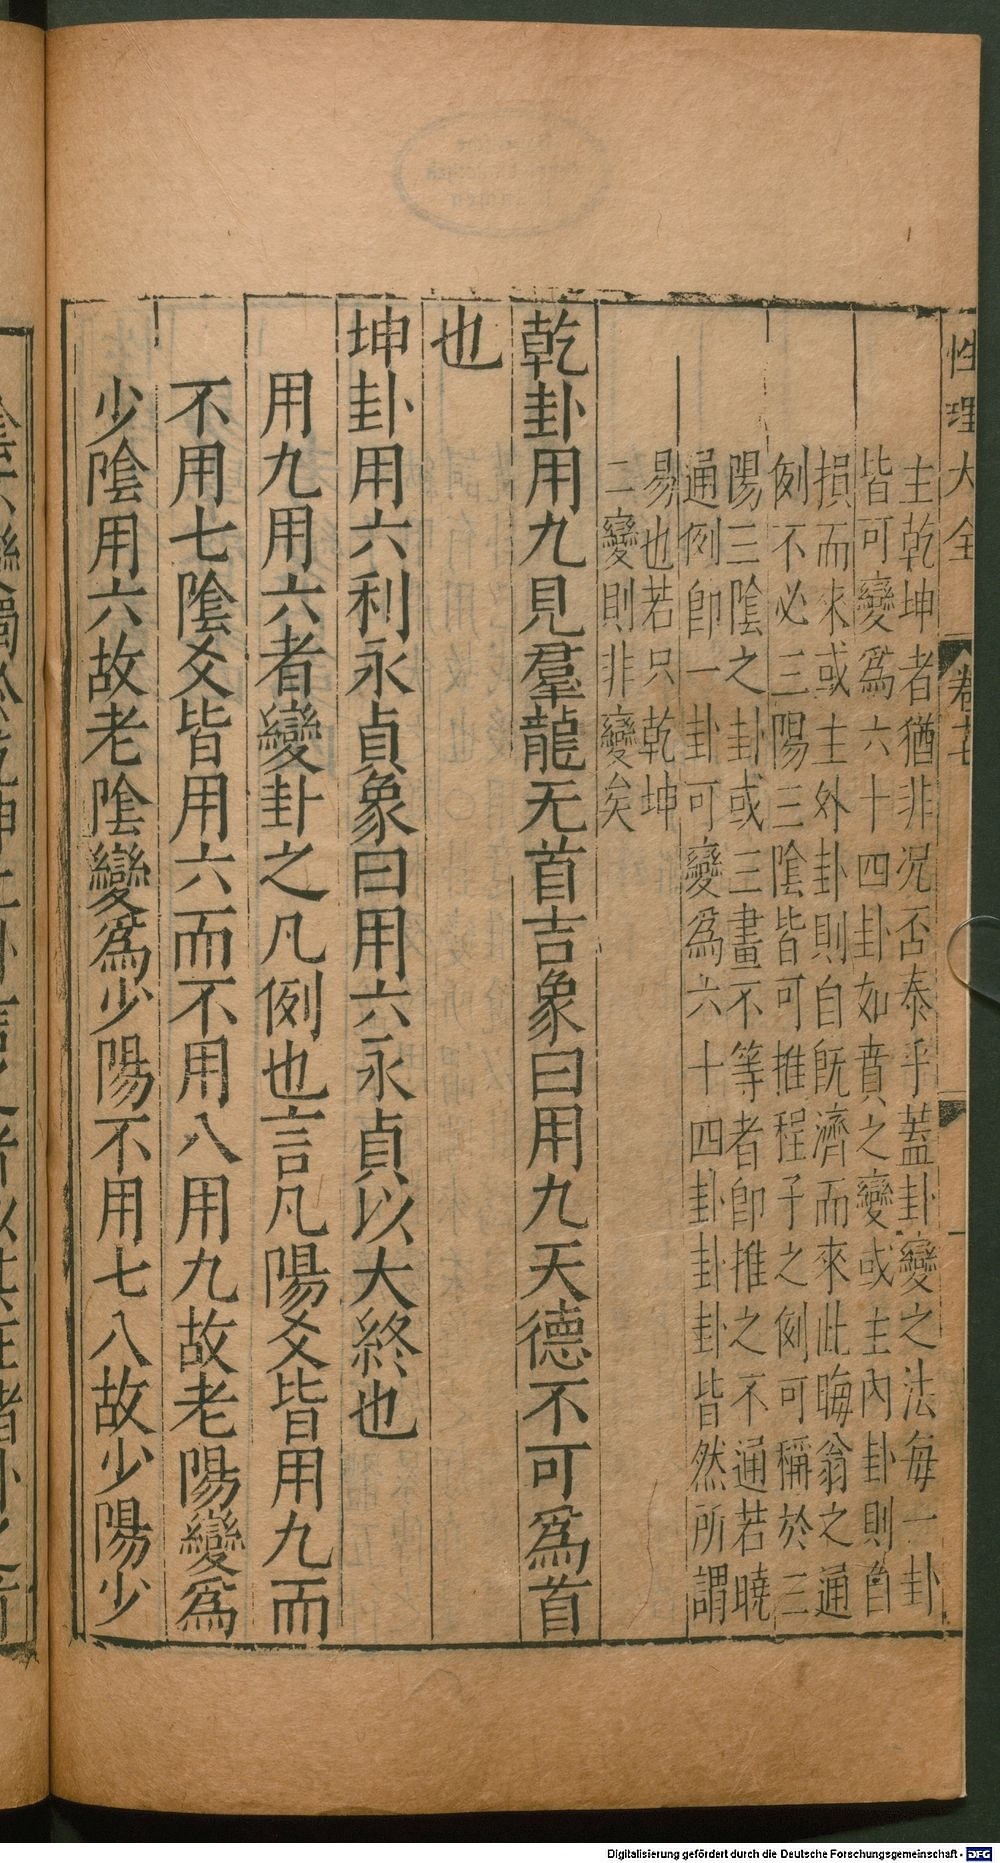 性理大全 卷十七
主乾坤者猶非况否泰乎蓋卦變之法每一卦
皆可變爲六十四卦如賁之變或主內卦則自
損而來或主外卦則自旣濟而來此晦翁之通
例不必三陽三陰皆可推程子之例可稱於三
陽三陰之卦或三畫不等者卽推之不通若曉
通例卽一卦可變爲六十四卦卦卦皆然所謂
易也若只乾坤
二變則非變矣
乾卦用九見羣龍无首吉象曰用九天德不可爲首
也
坤卦用六利永貞象曰用六永貞以大終也
用九用六者變卦之凡例也言凡陽爻皆用九而
不用七陰爻皆用六而不用八用九故老陽變爲
少陰用六故老陰變爲少陽不用七八故少陽少
Digitalisierung gefördert durch die Deutsche Forschungsgemeinschaft - DFG